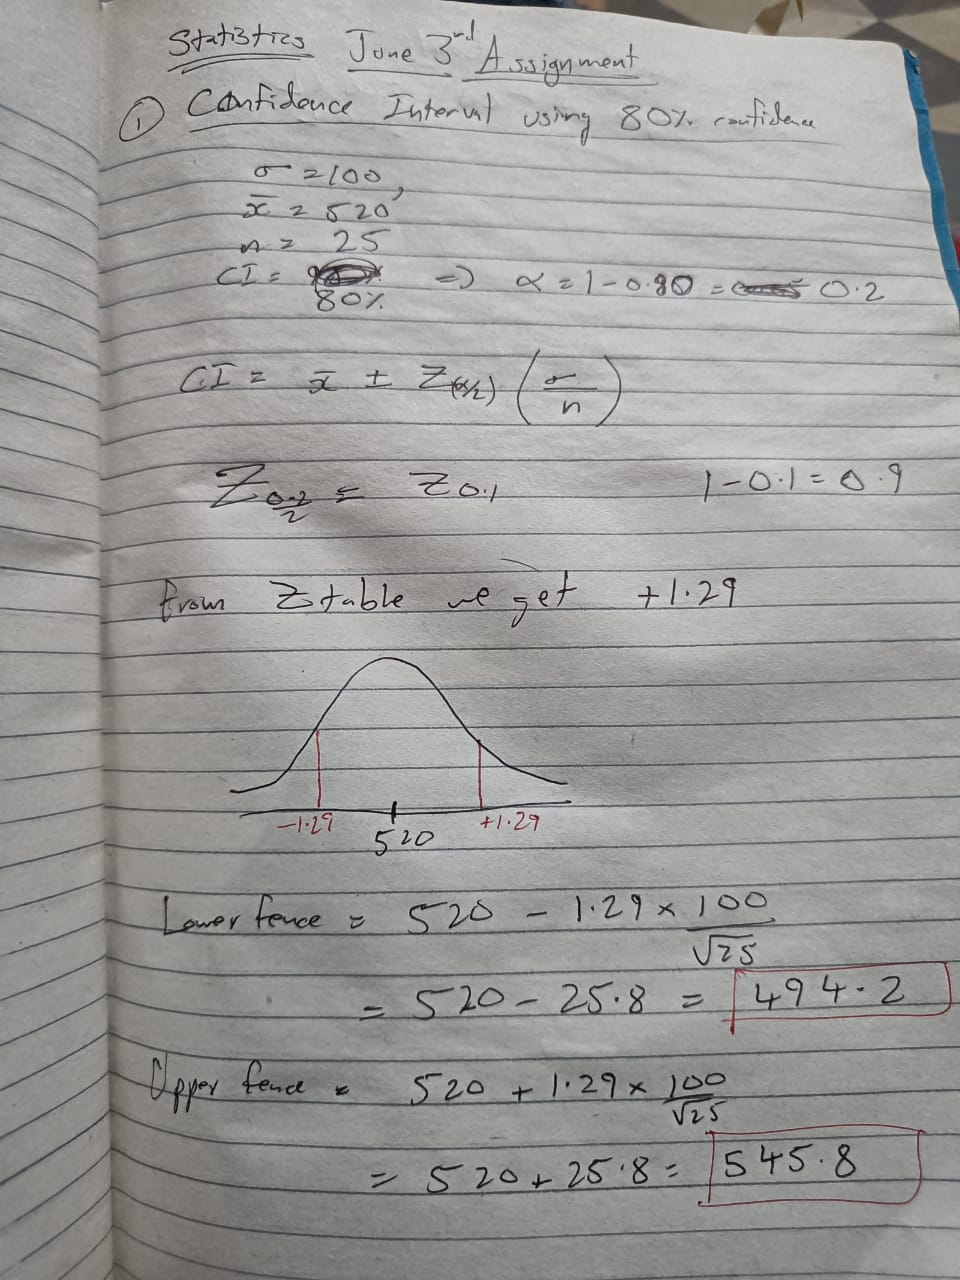 Statistics June 3rd Assignment
① Confidence Interval using 80% confidence
σ = 100,
x̄ = 520
n = 25
CI = 80% => α = 1 - 0.80 = 0.2
CI = x̄ ± Z(α/2) (σ/n)
Z0.2/2 = Z0.1 1 - 0.1 = 0.9
from Z table we get +1.29
-1.29 520 +1.29
Lower fence = 520 - 1.29 × 100/√25
= 520 - 25.8 = 494.2
Upper fence = 520 + 1.29 × 100/√25
= 520 + 25.8 = 545.8